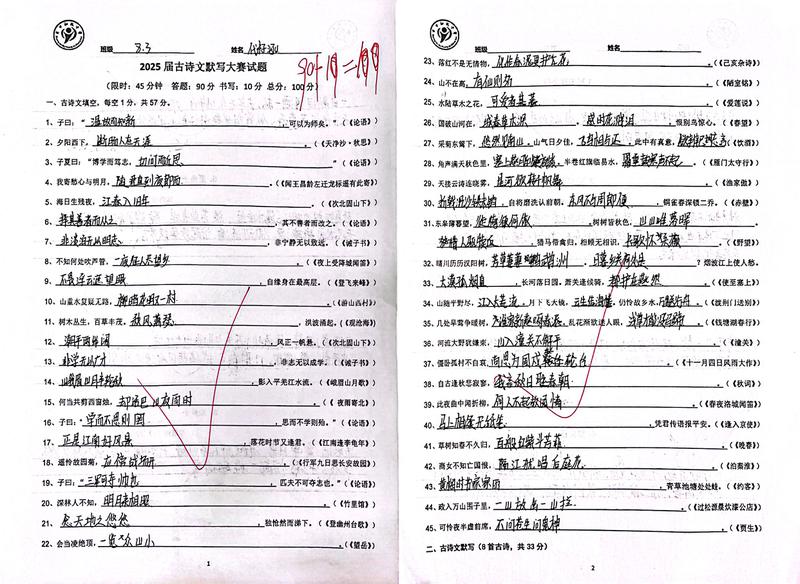 班级 8.3 姓名
90+10=100
2025届古诗文默写大赛试题
(限时：45分钟 答题：90分 书写：10分 总分：100分)
一、古诗文填空。每空1分，共57分。
1、子曰：“温故而知新，可以为师矣。”（《论语》）
2、夕阳西下，断肠人在天涯。（《天净沙·秋思》）
3、子夏曰：“博学而笃志，切问而近思”（《论语》）
4、我寄愁心与明月，随君直到夜郎西。（《闻王昌龄左迁龙标遥有此寄》）
5、海日生残夜，江春入旧年。（《次北固山下》）
6、择其善者而从之，其不善者而改之。（《论语》）
7、非淡泊无以明志，非宁静无以致远。（《诫子书》）
8、不知何处吹芦管，一夜征人尽望乡。（《夜上受降城闻笛》）
9、不畏浮云遮望眼，自缘身在最高层。（《登飞来峰》）
10、山重水复疑无路，柳暗花明又一村。（《游山西村》）
11、树木丛生，百草丰茂。秋风萧瑟，洪波涌起。（《观沧海》）
12、潮平两岸阔，风正一帆悬。（《次北固山下》）
13、非学无以广才，非志无以成学。（《诫子书》）
14、峨眉山月半轮秋，影入平羌江水流。（《峨眉山月歌》）
15、何当共剪西窗烛，却话巴山夜雨时。（《夜雨寄北》）
16、子曰：“学而不思则罔，思而不学则殆。”（《论语》）
17、正是江南好风景，落花时节又逢君。（《江南逢李龟年》）
18、遥怜故园菊，应傍战场开。（《行军九日思长安故园》）
19、子曰：“三军可夺帅也，匹夫不可夺志也。”（《论语》）
20、深林人不知，明月来相照。（《竹里馆》）
21、念天地之悠悠，独怆然而涕下。（《登幽州台歌》）
22、会当凌绝顶，一览众山小。（《望岳》）
1
班级 姓名
23、落红不是无情物，化作春泥更护花。（《己亥杂诗》）
24、山不在高，有仙则名。（《陋室铭》）
25、水陆草木之花，可爱者甚蕃。（《爱莲说》）
26、国破山河在，城春草木深。感时花溅泪，恨别鸟惊心。（《春望》）
27、采菊东篱下，悠然见南山。山气日夕佳，飞鸟相与还。此中有真意，欲辨已忘言。（《饮酒》）
28、角声满天秋色里，塞上燕脂凝夜紫。半卷红旗临易水，霜重鼓寒声不起。（《雁门太守行》）
29、天接云涛连晓雾，星河欲转千帆舞。（《渔家傲》）
30、折戟沉沙铁未销，自将磨洗认前朝。东风不与周郎便，铜雀春深锁二乔。（《赤壁》）
31、东皋薄暮望，徙倚欲何依。树树皆秋色，山山唯落晖。
牧人驱犊返，猎马带禽归。相顾无相识，长歌怀采薇。（《野望》）
32、晴川历历汉阳树，芳草萋萋鹦鹉洲。日暮乡关何处是？烟波江上使人愁。
33、大漠孤烟直，长河落日圆。萧关逢候骑，都护在燕然。（《使至塞上》）
34、山随平野尽，江入大荒流。月下飞天镜，云生结海楼。仍怜故乡水，万里送行舟。（《渡荆门送别》）
35、几处早莺争暖树，谁家新燕啄春泥。乱花渐欲迷人眼，浅草才能没马蹄。（《钱塘湖春行》）
36、河流大野犹嫌束，山入潼关不解平。（《潼关》）
37、僵卧孤村不自哀，尚思为国戍轮台。（《十一月四日风雨大作》）
38、自古逢秋悲寂寥，我言秋日胜春朝。（《秋词》）
39、此夜曲中闻折柳，何人不起故园情。（《春夜洛城闻笛》）
40、马上相逢无纸笔，凭君传语报平安。（《逢入京使》）
41、草树知春不久归，百般红紫斗芳菲。（《晚春》）
42、商女不知亡国恨，隔江犹唱后庭花。（《泊秦淮》）
43、黄梅时节家家雨，青草池塘处处蛙。（《约客》）
44、政入万山围子里，一山放出一山拦。（《过松源晨炊漆公店》）
45、可怜夜半虚前席，不问苍生问鬼神。（《贾生》）
二、古诗文默写（8首古诗，共33分）
2